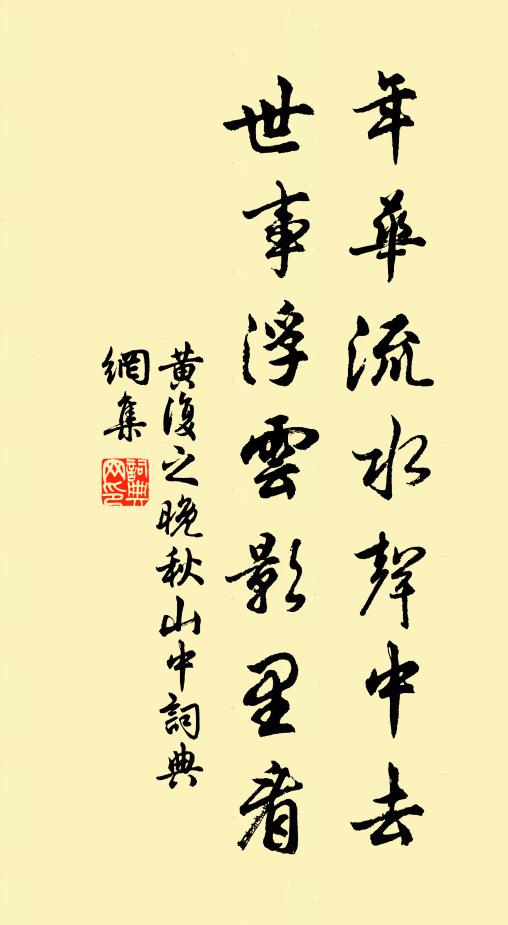 年華流水聲中去
世事浮雲影里看
黃復之晚秋山中詞典
網集
詞典
网印